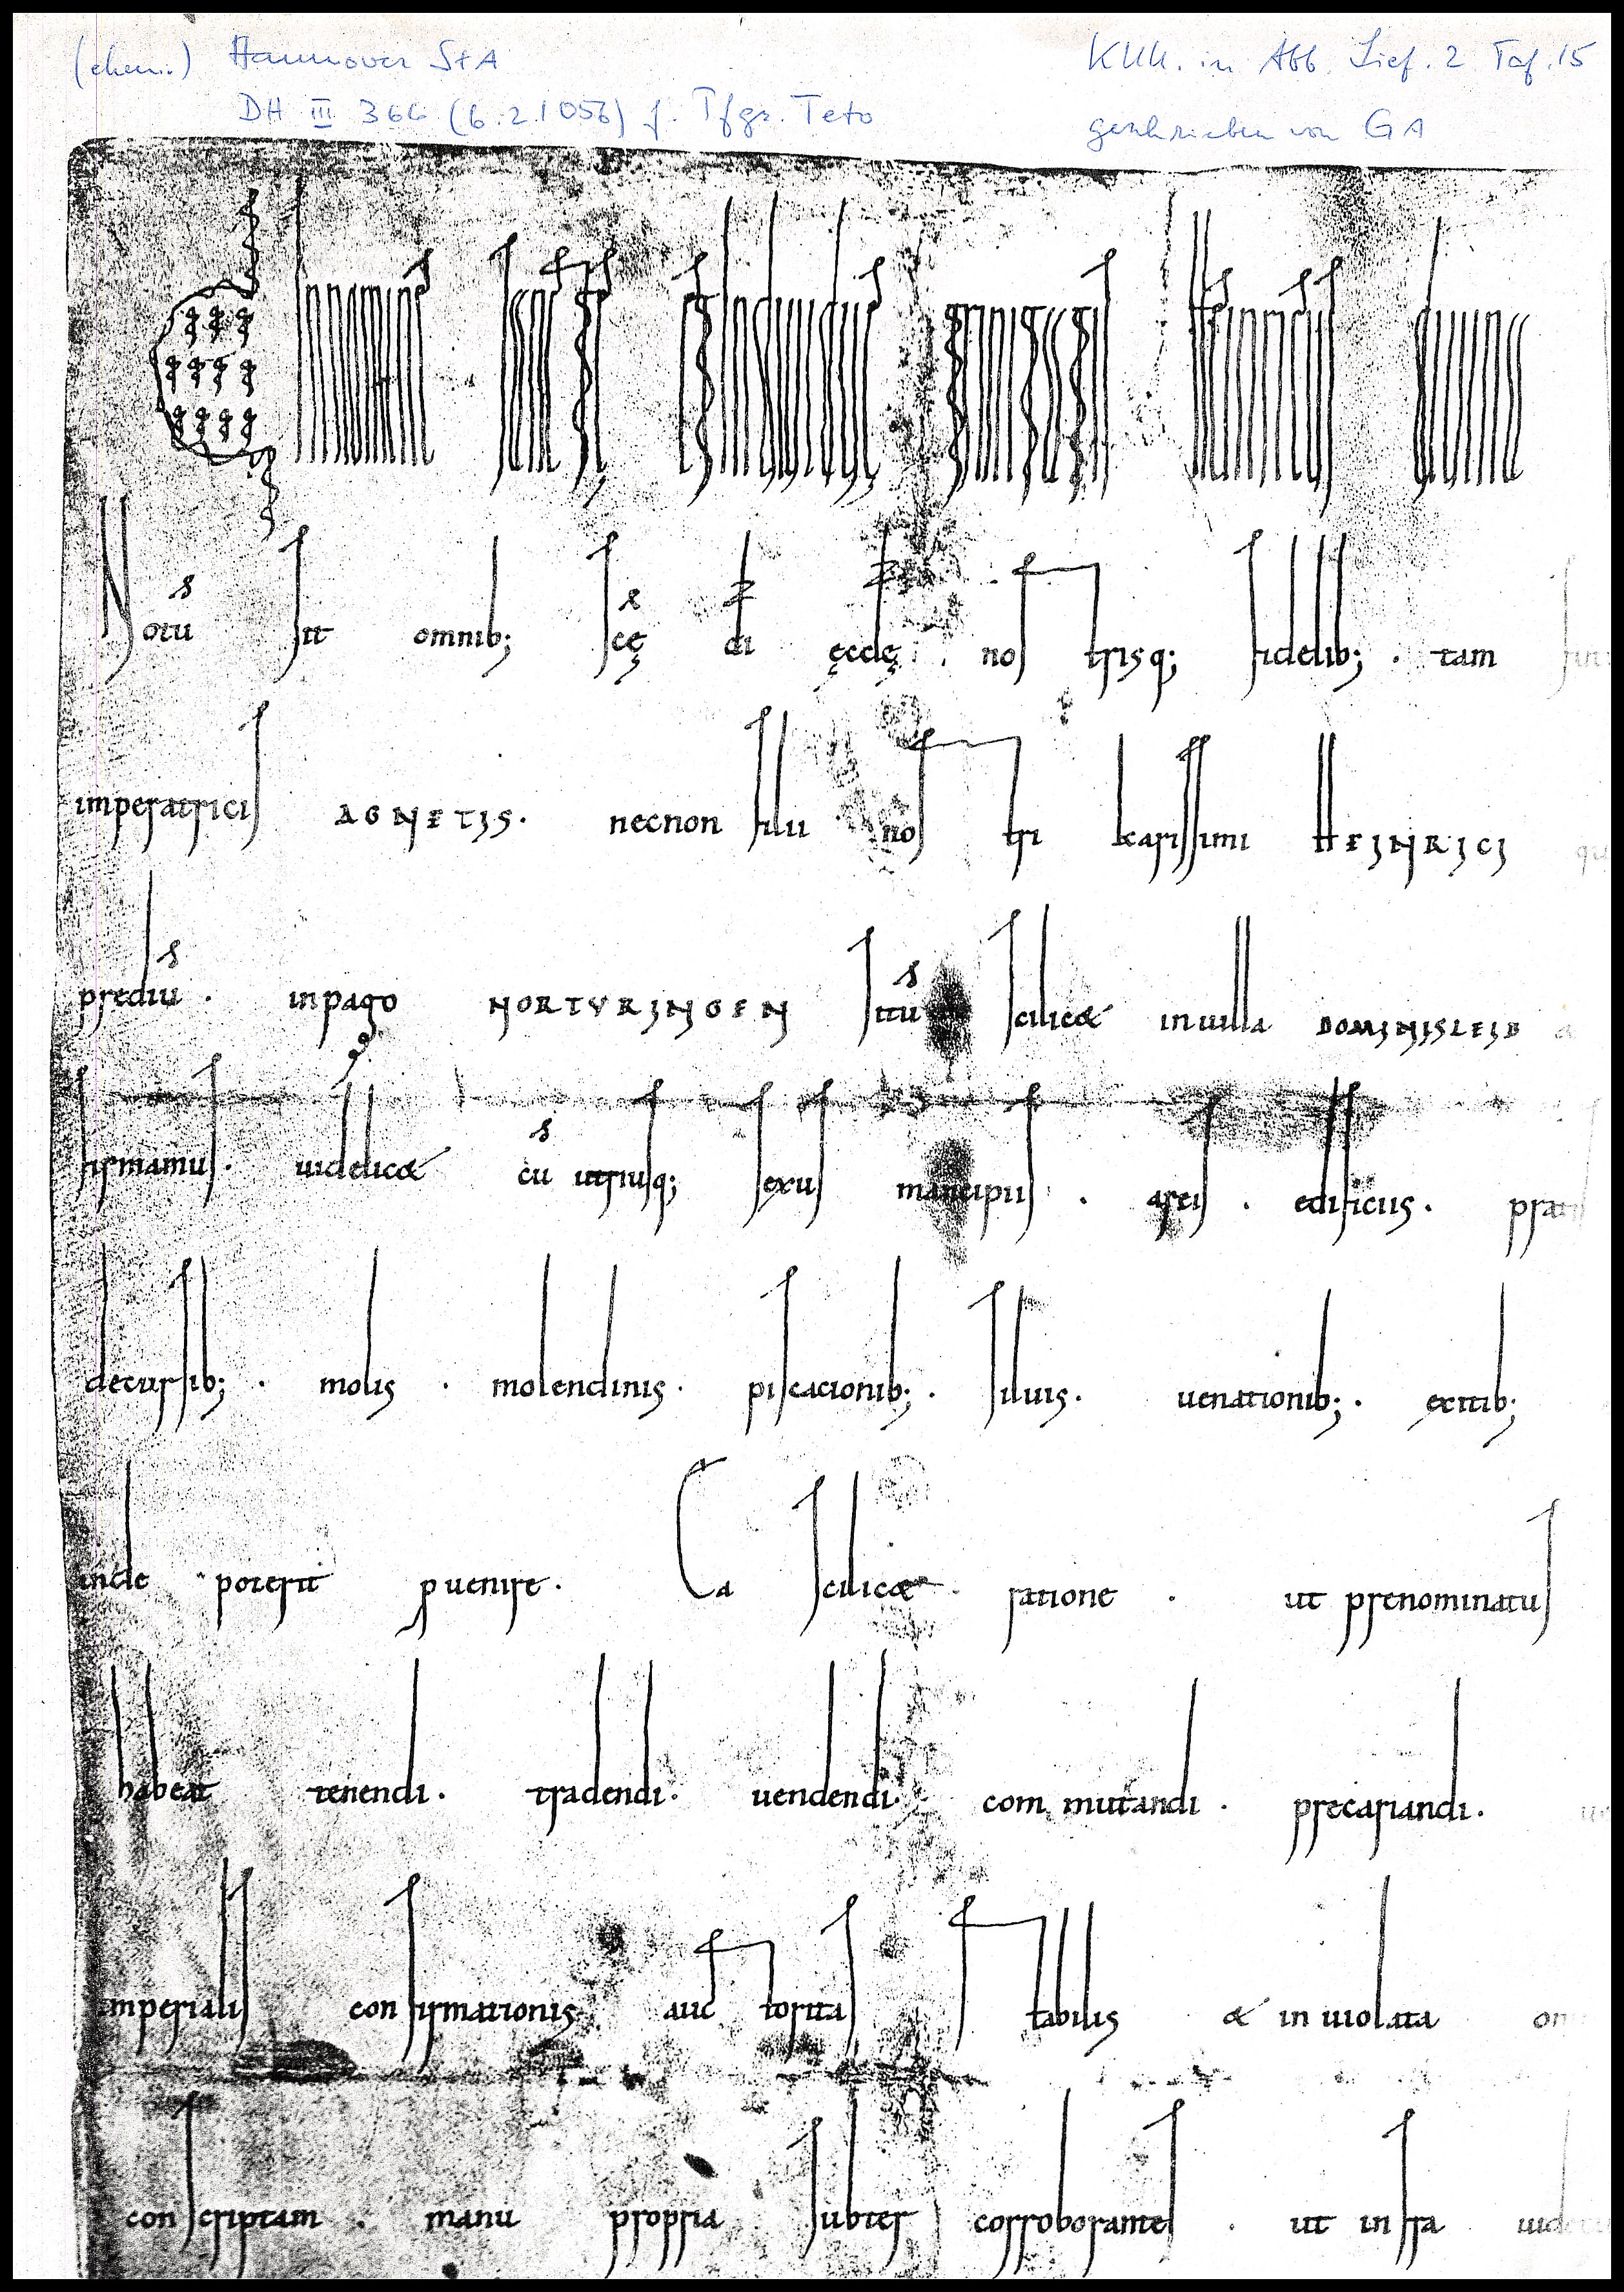 (ehem.) Hannover StA
KUU. in Abb. Lief. 2 Taf. 15
DH III 366 (6.2.1056) f. Pfgr. Teto
geschrieben von GA
In nomine sancte et individue trinitatis Heinricus divina
Notu sit omnib; sce di ęcclę nostrisq; fidelib; . tam
imperatricis AGNETIS . necnon filii nostri karissimi HEINRICI
prediu . in pago NORTVRINGEN situ scilicet in uilla DOMINISLEIB
firmamus . uidelicet cu utriusq; sexus mancipiis . areis . edificiis . pratis
decursib; . molis . molendinis . piscacionib; . siluis . uenationib; . exitib;
inde poterit puenire . Ea scilicet ratione . ut prenominatus
habeat tenendi . tradendi . uendendi . com mutandi . precariandi .
imperialis confirmationis auctoritas stabilis & in uiolata
conscriptam . manu propria subter corroborantes . ut infra